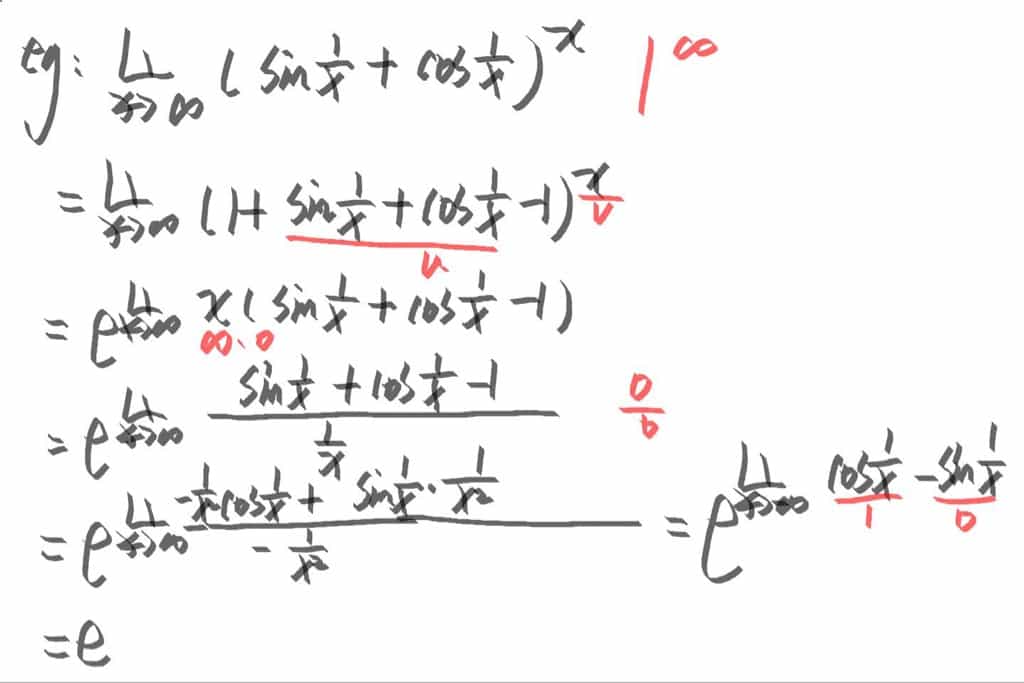 eg: lim x→∞ (sin 1/x + cos 1/x)^x 1^∞
= lim x→∞ (1+ sin 1/x + cos 1/x -1)^x v
u
= e^lim x→∞ x(sin 1/x + cos 1/x -1)
∞·0
= e^lim x→∞ (sin 1/x + cos 1/x -1)/(1/x) 0/0
= e^lim x→∞ (-1/x² cos 1/x + sin 1/x · 1/x²)/(-1/x²) = e^lim x→∞ cos 1/x - sin 1/x
1 0
= e